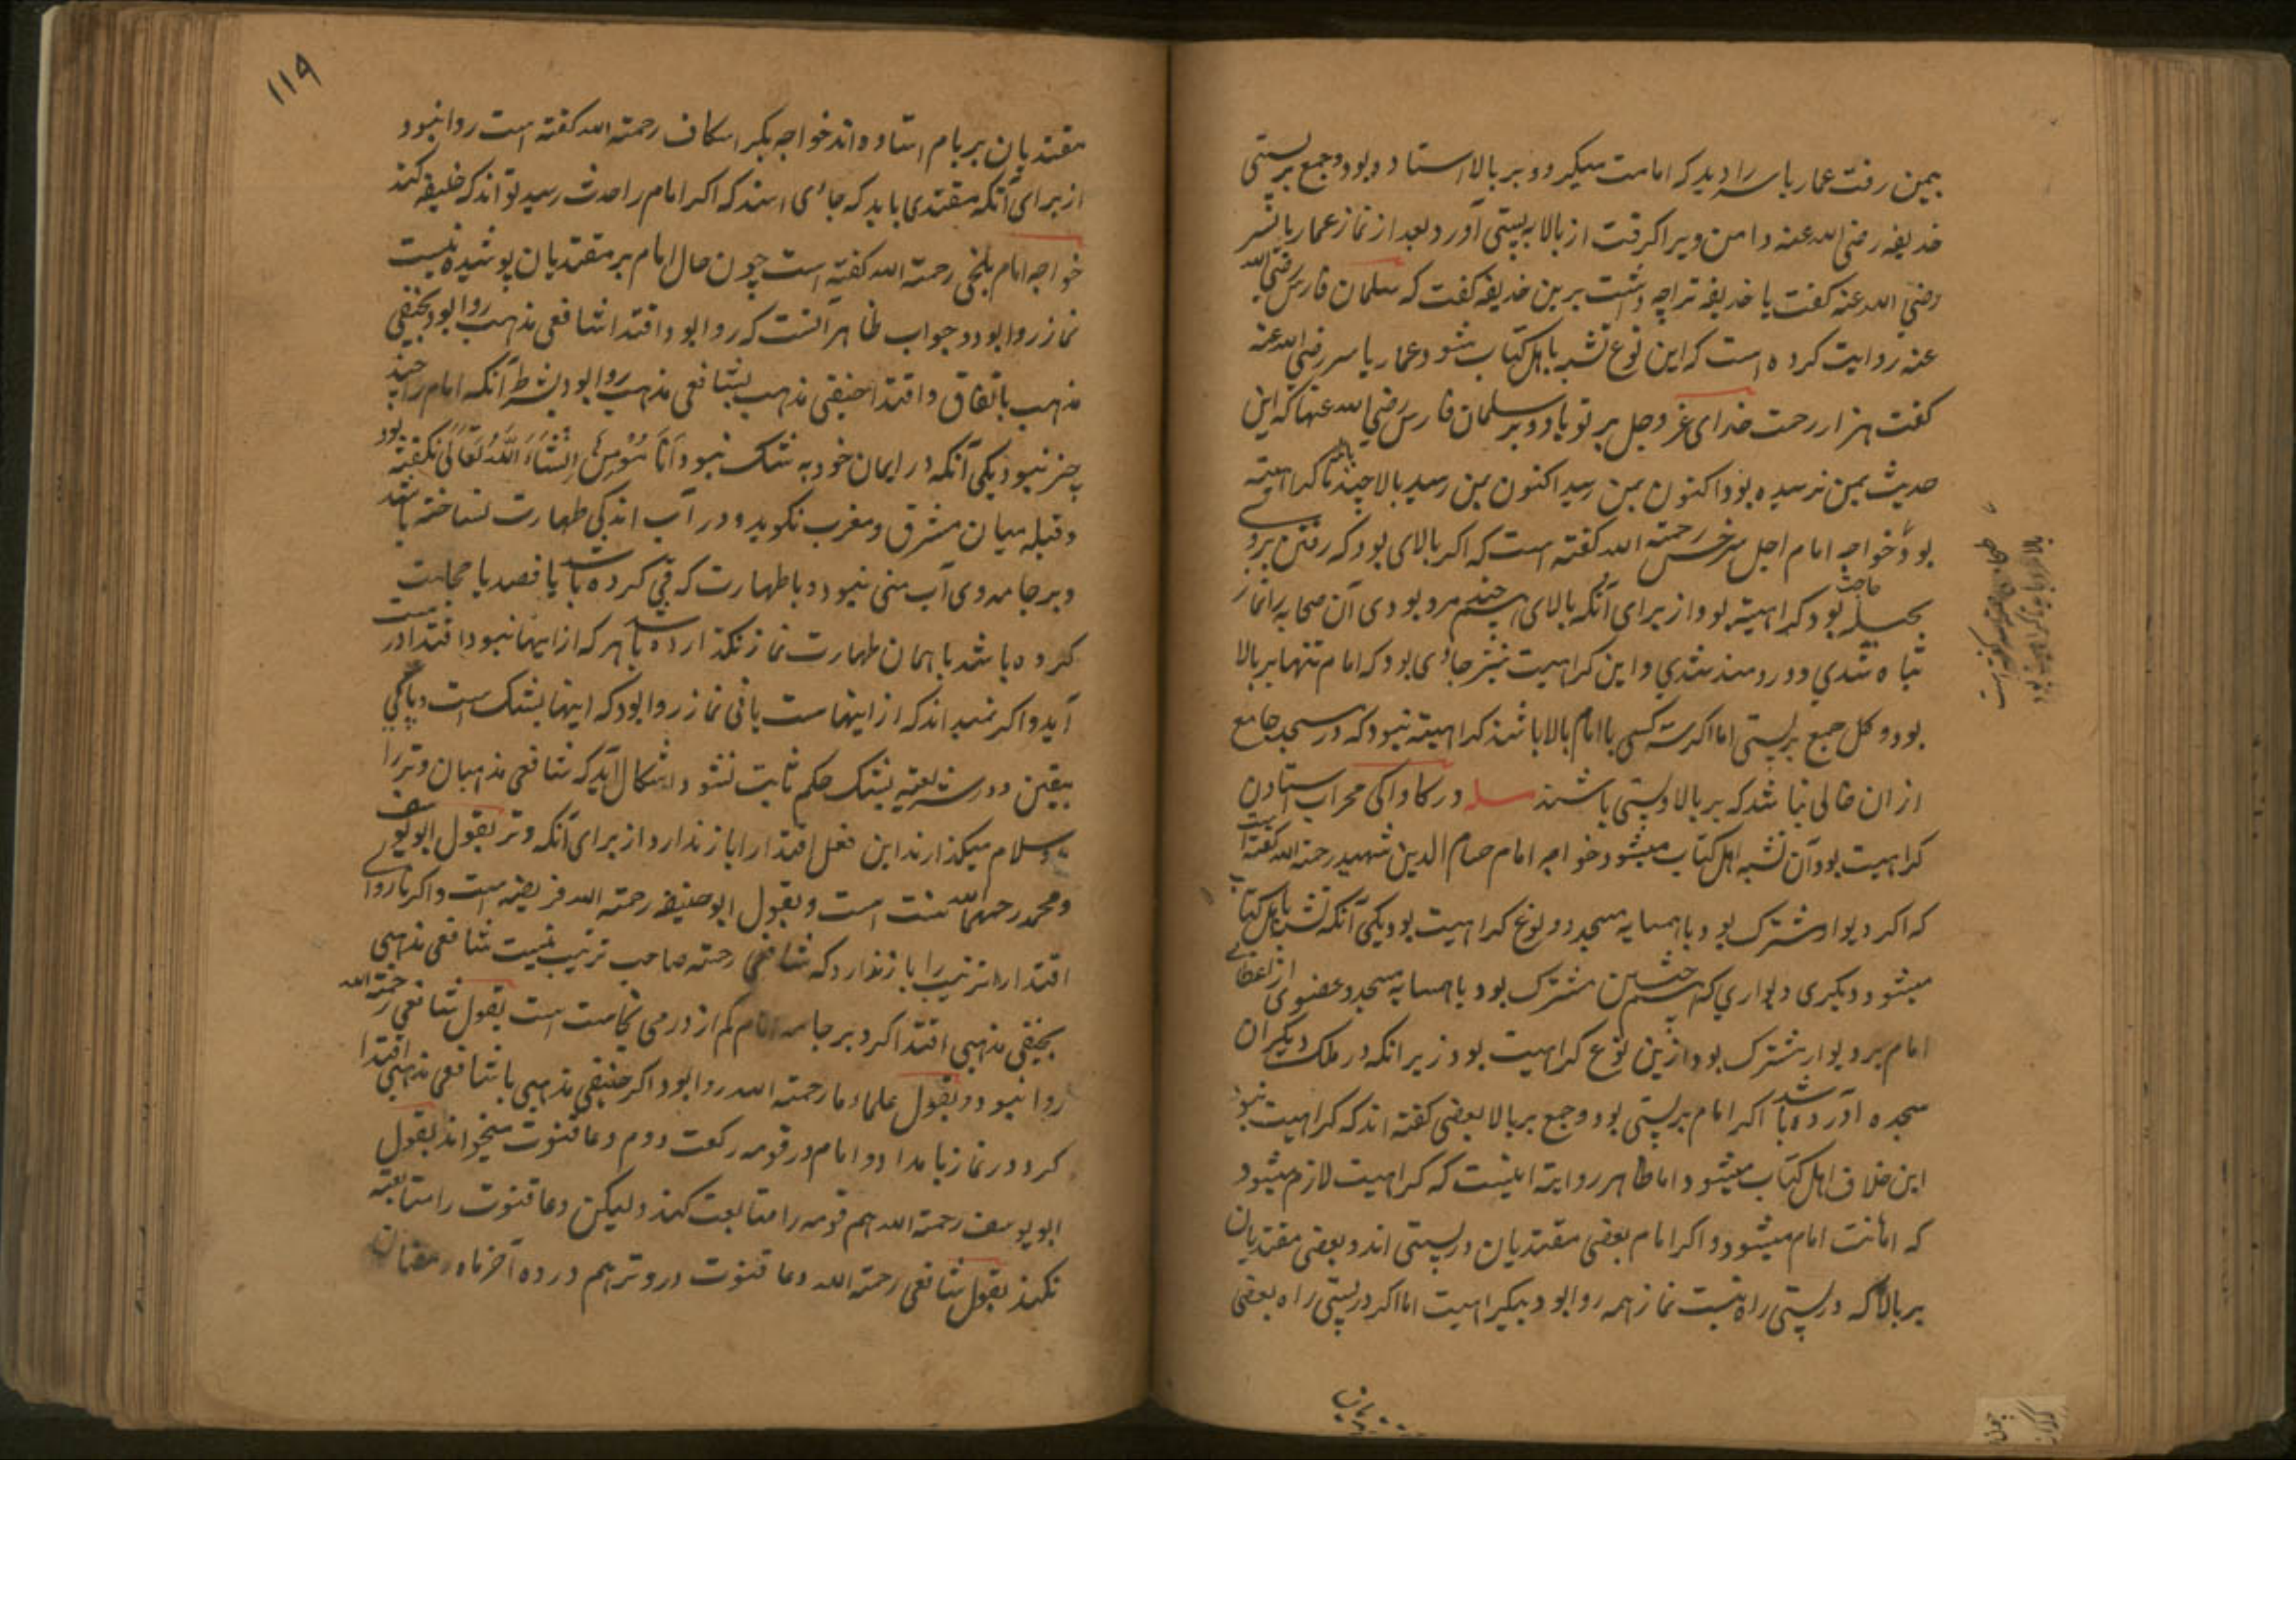 بیمن رفت عمار یاسر را دید که امامت میکرد و بر بالا استاده بود و جمع بر پستی
حذیفه رضی الله عنه دامن ویرا کرفت از بالا به پستی آورد بعد از نماز عمار یاسر
رضی الله عنه کفت یا حذیفه ترا چه داشت برین حذیفه کفت که سلمان فارس رضی الله
عنه روایت کرده است که این نوع تشبه باهل کتاب شود و عمار یاسر رضی الله عنه
کفت هزار رحمت خدای عز وجل بر تو باد و بر سلمان فارس رضی الله عنها که این
حدیث بمن نرسیده بود اکنون بمن رسید اکنون بمن رسید بالا چند باشد تا کراهیته
بود خواجه امام اجل سرخس رحمته الله کفته است که اکر بالای بود که رفتن بروی
بحیله حاجت بود کراهیته بود از برای آنکه بالای چشم مرد بودی آن صحابه را نماز
تباه شدی و دردمند شدی و این کراهیت نیز جائی بود که امام تنها بر بالا
بود و کل جمع بر پستی اما اکر سه کسی با امام بالا باشند کراهیته نبود که در مسجد جامع
از ان خالی نباشد که بر بالا و پستی باشند مسله در کاواکی محراب استادن
کراهیت بود و آن تشبه اهل کتاب میشود خواجه امام حسام الدین شهید رحمته الله کفته است
که اکر دیوار مشترک بود با همسایه مسجد دو نوع کراهیت بود یکی آنکه تشبه باهل کتاب
میشود و دیکری دیواری که مشترک بود با همسایه مسجد و عضوی از اعضای
امام بر دیوار مشترک بود ازین نوع کراهیت بود زیر انکه در ملک دیکران
سجده آورده باشد اکر امام بر پستی بود و جمع بر بالا بعضی کفته اند که کراهیت نبود
این خلاف اهل کتاب میشود اما ظاهر روایته اینست که کراهیت لازم میشود
که اهانت امام میشود و اکر امام بعضی مقتدیان در پستی اند و بعضی مقتدیان
بر بالا که در پستی راه نیست نماز همه روا بود بیکراهیت اما اکر در پستی راه بعضی
۱۱۹
مقتدیان بر بام استاده اند خواجه بکر اسکاف رحمته الله کفته است روا نبود
از برای آنکه مقتدی باید که جائی استد که اکر امام را حدث رسید تواند که خلیفه کند
خواجه امام بلخی رحمته الله کفته است چون حال امام بر مقتدیان پوشیده نیست
نماز روا بود و جواب ظاهر آنست که روا بود اقتدا شافعی مذهب روا بود بحنفی
مذهب باتفاق و اقتدا حنیفی مذهب بشافعی مذهب روا بود بشرط آنکه امام را چند
چیز نبود یکی آنکه در ایمان خود به شک نبود اَنَا مُوْمِنٌ اِنْشَاءَ اللَّهُ تَعَالَی نکفته بود
و قبله میان مشرق و مغرب نکوید و در آب اندکی طهارت نساخته باشد
و بر جامه وی آب منی نبود و با طهارت که قی کرده باشد یا فصد یا حجامت
کرده باشد با همان طهارت نماز نکذارده باشد هر که از اینها نبود اقتدا درست
آید و اکر نمیداند که از اینهاست یا نی نماز روا بود که اینها بشک است و پاکی
بیقین و در شریعته بشک حکم ثابت نشود و اشکال آید که شافعی مذهبان وتر را
سلام میکذارند این فعل اقتدا را باز ندارد از برای آنکه وتر بقول ابو یوسف
و محمد رحمهما الله سنت است و بقول ابو حنیفه رحمته الله فریضه است و اکر ناروای
اقتدا را ترتیب را باز ندارد که شافعی رحمته صاحب ترتیب نیست شافعی مذهبی
بحنیفی مذهبی اقتدا کرد بر جامه امام کم از درمی نجاست است بقول شافعی رحمته الله
روا نبود و بقول علماء ما رحمته الله روا بود اکر حنیفی مذهبی با شافعی مذهبی اقتدا
کرد در نماز بامداد و امام در قومه رکعت دوم دعا قنوت میخواند بقول
ابو یوسف رحمته الله هم قومه را متابعت کند ولیکن دعا قنوت را متابعته
نکند بقول شافعی رحمته الله دعا قنوت در وتر هم در ده آخر ماه رمضان